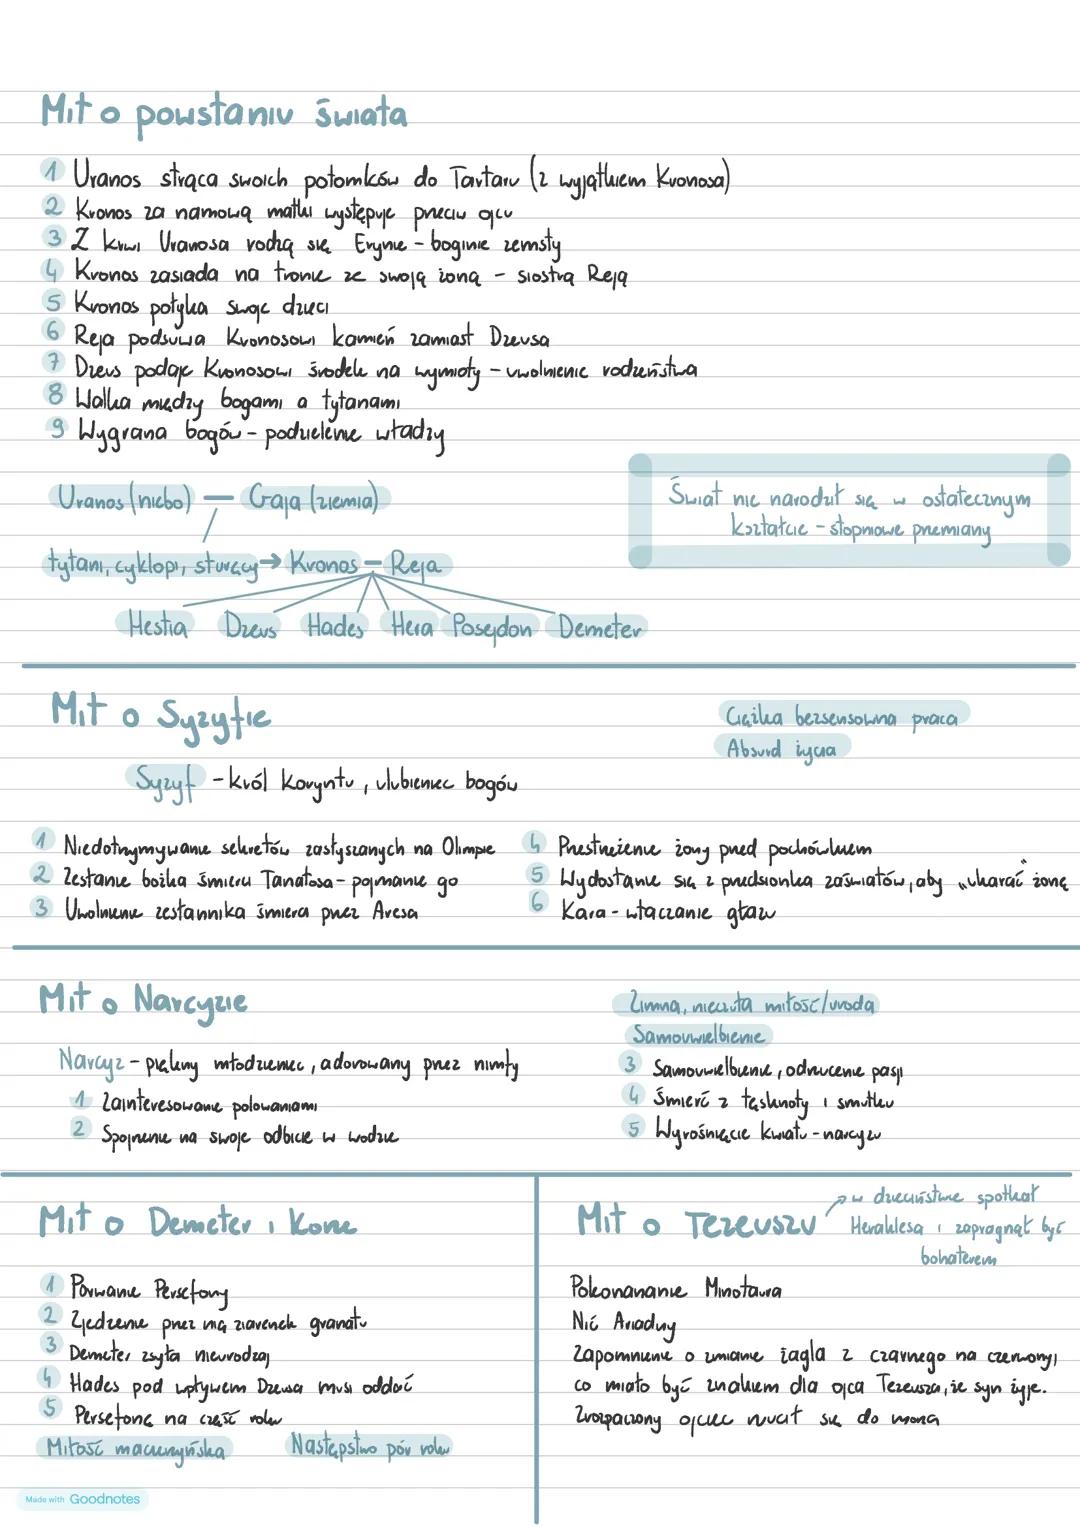 Mit o powstaniu świata
1 Uranos strąca swoich potomków do Tartaru (z wyjątkiem Kronosa)
2 Kronos za namową matki występuje przeciw ojcu
3 Z krwi Uranosa rodzą się Erynie - boginie zemsty
4 Kronos zasiada na tronie ze swoją żoną - siostrą Reją
5 Kronos połyka swoje dzieci
6 Reja podsuwa Kronosowi kamień zamiast Dzeusa
7 Dzeus podaje Kronosowi środek na wymioty - uwolnienie rodzeństwa
8 Walka między bogami a tytanami
9 Wygrana bogów - podzielenie władzy
Uranos (niebo) — Gaja (ziemia)
Świat nie narodził się w ostatecznym
kształcie - stopniowe przemiany
tytani, cyklopi, sturęcy → Kronos — Reja
Hestia Dzeus Hades Hera Posejdon Demeter
Mit o Syzyfie
Ciężka bezsensowna praca
Absurd życia
Syzyf - król Koryntu, ulubieniec bogów
1 Niedotrzymywanie sekretów zasłyszanych na Olimpie
2 Zesłanie bożka śmierci Tanatosa - pojmanie go
3 Uwolnienie zesłannika śmierci przez Aresa
4 Przestrzeżenie żony przed pochówkiem
5 Wydostanie się z przedsionka zaświatów, aby „ukarać" żonę
6 Kara - wtaczanie głazu
Mit o Narcyzie
Zimna, nieczuła miłość/uroda
Samouwielbienie
Narcyz - piękny młodzieniec, adorowany przez nimfy
1 Zainteresowanie polowaniami
2 Spojrzenie na swoje odbicie w wodzie
3 Samouwielbienie, odrzucenie pasji
4 Śmierć z tęsknoty i smutku
5 Wyrośnięcie kwiatu - narcyzu
Mit o Demeter i Korze
1 Porwanie Persefony
2 Zjedzenie przez nią ziarenek granatu
3 Demeter zsyła nieurodzaj
4 Hades pod wpływem Dzeusa musi oddać
5 Persefonę na część roku
Miłość macierzyńska Następstwo pór roku
Mit o Tezeuszu
w dzieciństwie spotkał
Heraklesa i zapragnął być
bohaterem
Pokonananie Minotaura
Nić Ariadny
Zapomnienie o zmianie żagla z czarnego na czerwony,
co miało być znakiem dla ojca Tezeusza, że syn żyje.
Zrozpaczony ojciec rzucił się do morza
Made with Goodnotes